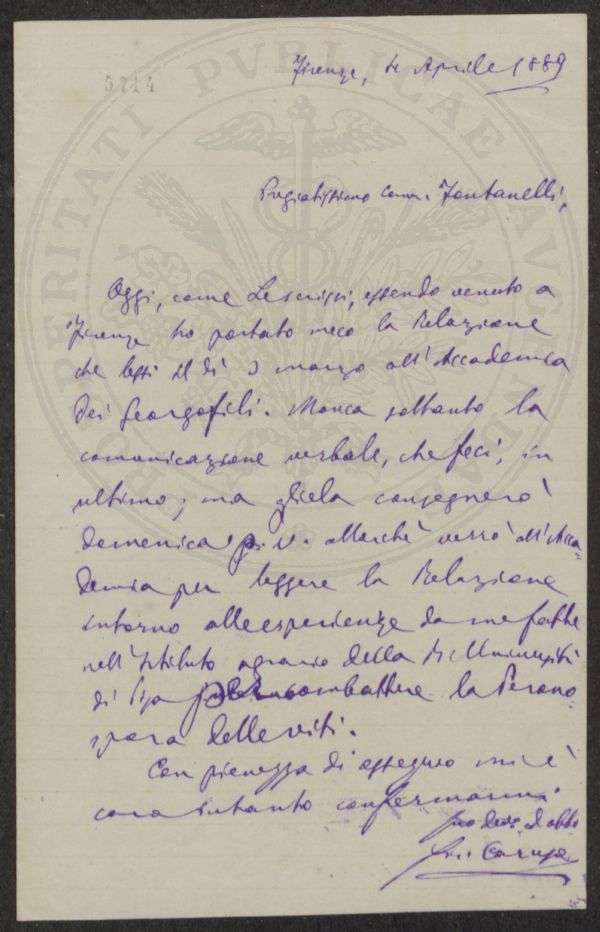 5214
PROSPERITATI PVBLICAE AVGENDAE
Firenze, 4 Aprile 1889
Pregiatissimo Comm. Fontanelli,
Oggi, come Le scrissi, essendo venuto a
Firenze ho portato meco la Relazione
che lessi il dì 3 marzo all'Accademia
dei Georgofili. Manca soltanto la
comunicazione verbale, che feci, in
ultimo; ma gliela consegnerò
domenica p. v. allorchè verrò all'Acca-
demia per leggere la Relazione
intorno alle esperienze da me fatte
nell'Istituto agrario della R. Università
di Pisa per combattere la Perono-
spora delle viti.
Con pienezza di ossequio mi è
caro intanto confermarmi
suo dev. ed obbl.
Caruso